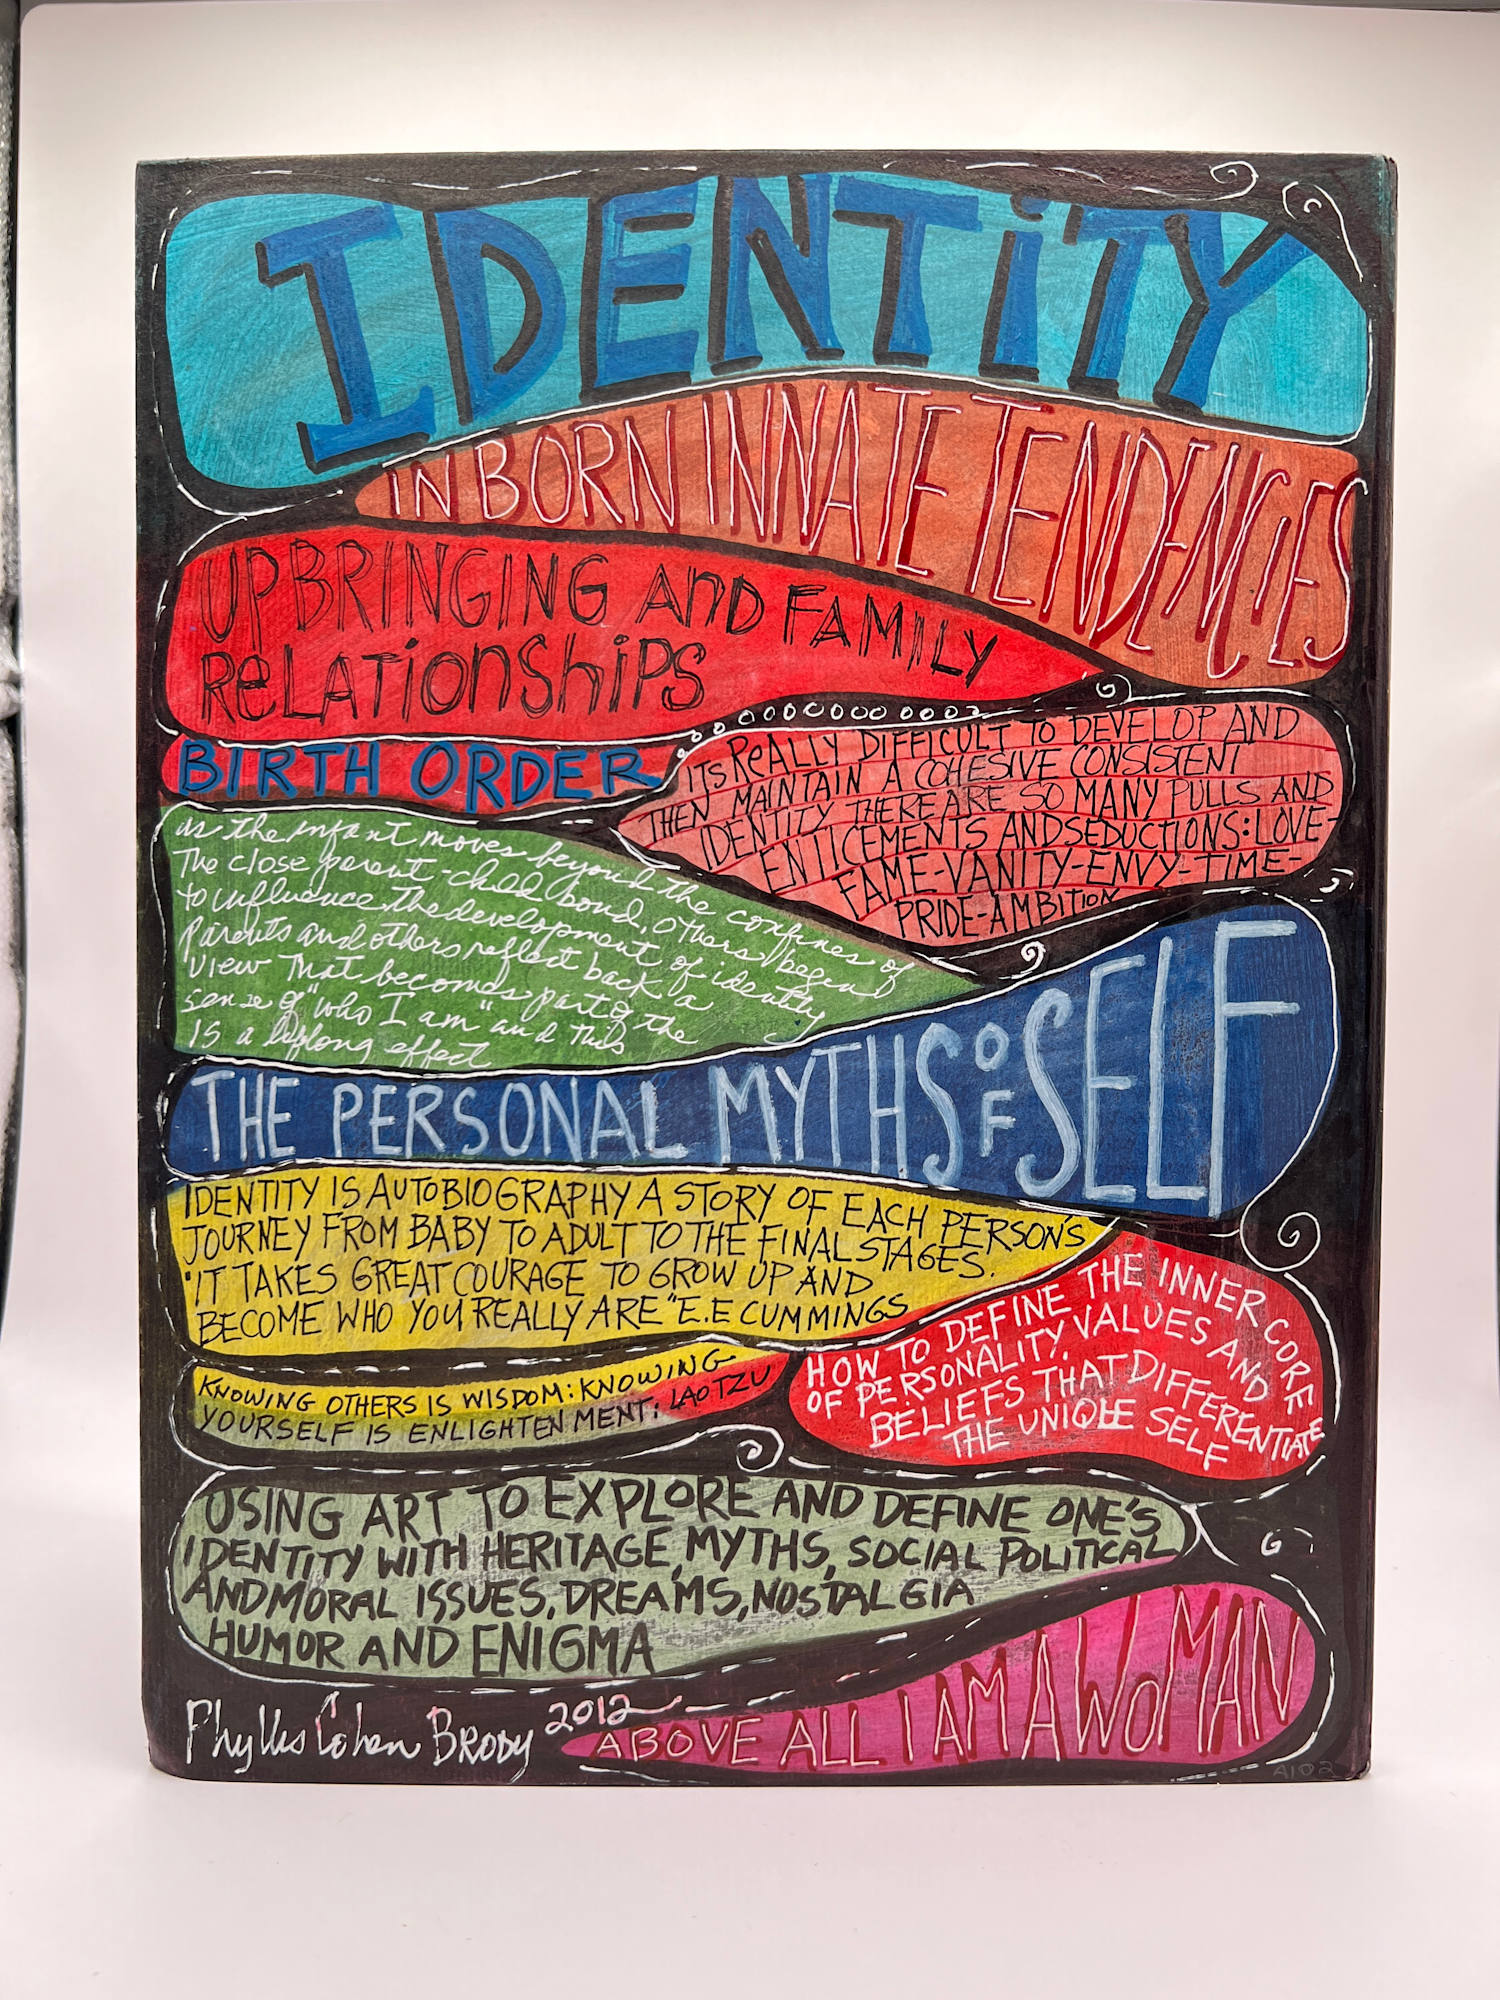 IDENTiTY
IN BORN INNATE TENDENCIES
UPBRINGING AnD FAMILY
ReLATionShiPS
BIRTH ORDER
ITS ReALLY DIFFICULT TO DEVELOP AND
THEN MAINTAIN A COHESIVE CONSISTENT
IDENTITY THERE ARE SO MANY PULLS AND
ENTICEMENTS AND SEDUCTIONS: LOVE-
FAME-VANITY-ENVY-TIME-
PRIDE-AMBITION
as the infant moves beyond the confines of
The close parent-child bond, others begin
to influence the development of identity
Parents and others reflect back a
view That becomes part of the
sense of "who I am" and this
IS a lifelong effect
THE PERSONAL MYTHS OF SELF
IDENTITY IS AUTOBIOGRAPHY A STORY OF EACH PERSON'S
JOURNEY FROM BABY TO ADULT TO THE FINAL STAGES.
"IT TAKES GREAT COURAGE TO GROW UP AND
BECOME WHO YOU REALLY ARE" E.E CUMMINGS
HOW TO DEFINE THE INNER CORE
OF PERSONALITY. VALUES AND
BELIEFS THAT DIFFERENTIATE
THE UNIQUE SELF
KNOWING OTHERS IS WISDOM: KNOWING
YOURSELF IS ENLIGHTENMENT: LAO TZU
USING ART TO EXPLORE AND DEFINE ONE'S
IDENTITY WITH HERITAGE, MYTHS, SOCIAL POLITICAL
AND MORAL ISSUES, DREAMS, NOSTALGIA
HUMOR AND ENIGMA
ABOVE ALL I AM A WOMAN
Phyllis Cohen BRODY 2012
A102